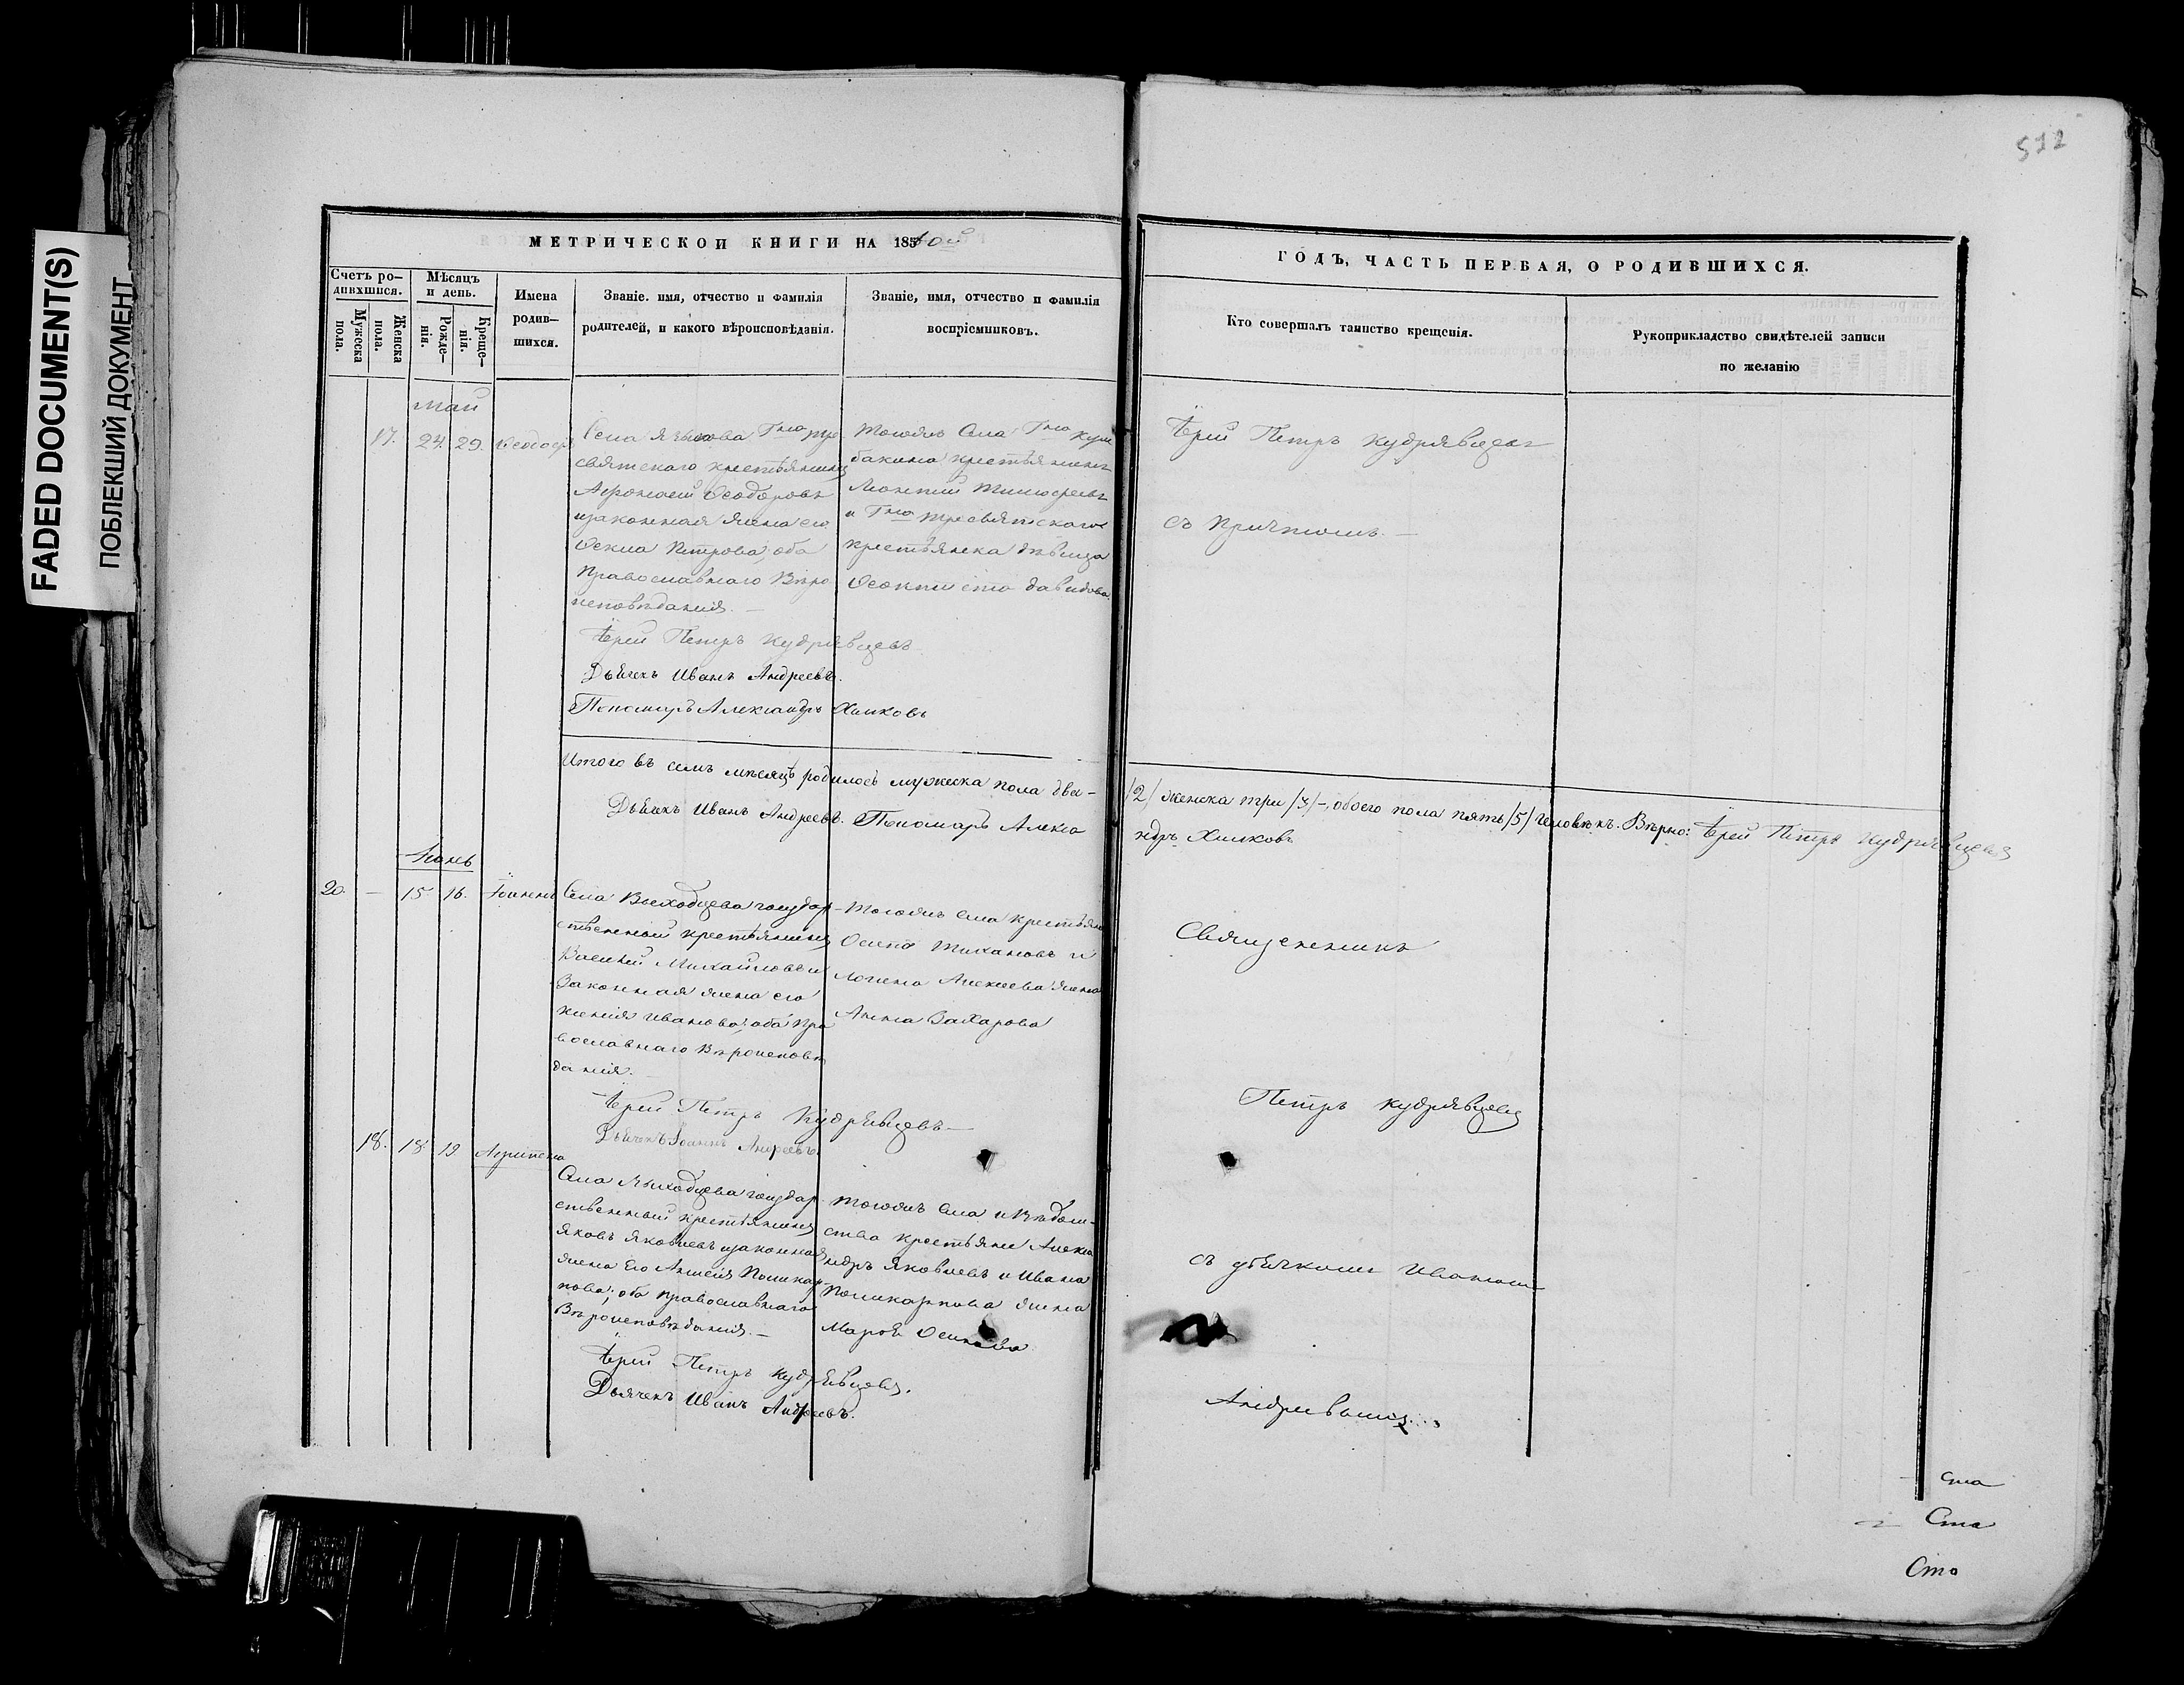 FADED DOCUMENT(S)
ПОБЛЕКШИЙ ДОКУМЕНТ
512
МЕТРИЧЕСКОИ КНИГИ НА 185
ГОДЪ, ЧАСТЬ ПЕРВАЯ, О РОДИВШИХСЯ.
Счетъ ро-
дившшися.
Мужеска
пола.
Женска
пола.
Мѣсяцъ
и день.
Рожде-
нія.
Креще-
нія.
Имена
родив-
шихся.
Званіе. имя, отчество и фамилія
родителей, и какого вѣроисповѣданія.
Званіе, имя, отчество и фамилія
воспріемниковъ.
Кто совершалъ таинство крещенія.
Рукоприкладство свидѣтелей записи
по желанію
Май
17. 24. 29.
Села Языкова
святскаго крестьянинъ
Афонасій Ѳеодоровъ
изаконная жена его
Петрова, оба
Православнаго Вѣро
исповѣданія. —
Іерей Петръ Кудрявцевъ
Дьячекъ Иванъ Андреевъ.
Пономарь Александръ Хилковъ
Тогожъ Села
бакина крестьянинъ
Леонтій Тимофеевъ
и
крестьянска дѣвица
Давидова.
Іерей Петръ Кудрявцевъ
съ Причтомъ. —
Итого въ семъ мѣсяцѣ родилось мужеска пола два —
/2/ женска три /3/ —, обоего пола пять /5/ человѣкъ. Вѣрно: Іерей Петръ Кудрявцевъ
Дьячекъ Иванъ Андреевъ. Пономарь Алекса
ндръ Хилковъ
Іюнь
20. — 15 16. Іоаннъ
Села Выходцева государ-
ственный крестьянинъ
Василій Михайловъ и
Законная жена его
Ксенія Иванова; оба пра
вославнаго Вѣроисповѣ
данія. —
Іерей Петръ Кудрявцевъ —
Дьячекъ Іоаннъ Андреевъ.
Тогожъ Села крестьян
Осипъ Тихановъ и
Логина Алексѣева жена
Анна Захарова
Священникъ
Петръ Кудрявцевъ
18. 18 19 Агрипена
Села Выходцева государ
ственный крестьянинъ
Яковъ Яковлевъ изаконная
жена Его Поликар-
пова; оба православнаго
Вѣроисповѣданія. —
Іерей Петръ Кудрявцевъ.
Дьячекъ Иванъ Андреевъ.
Тогожъ Села и Вѣдом-
ства крестьяне Алекса
ндръ Яковлевъ и Ивана
Поликарпова жена
Марфа Осипова
съ дьячкомъ Иваномъ
Андреевымъ.
Ста
Сто